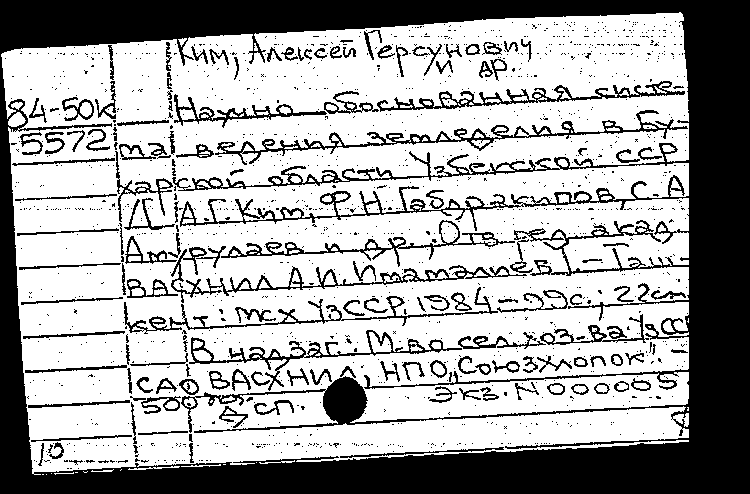 Ким, Алексей Герсунович
и др.
84-50к Научно обоснованная систе-
5572 ма ведения земледелия в Бу-
харской области Узбекской ССР
/ А.Г. Ким, Ф.Н. Габдракипов, С.А
Амурулаев и др.; Отв. ред. акад.
ВАСХНИЛ А.И. Имамалиев]. - Таш-
кент: МСХ УзССР, 1984. - 99с.; 22см
В надзаг.: М-во сел. хоз-ва УзССР
САО ВАСХНИЛ, НПО „Союзхлопок". -
500 экз. ДСП. Экз. N 000005.
10